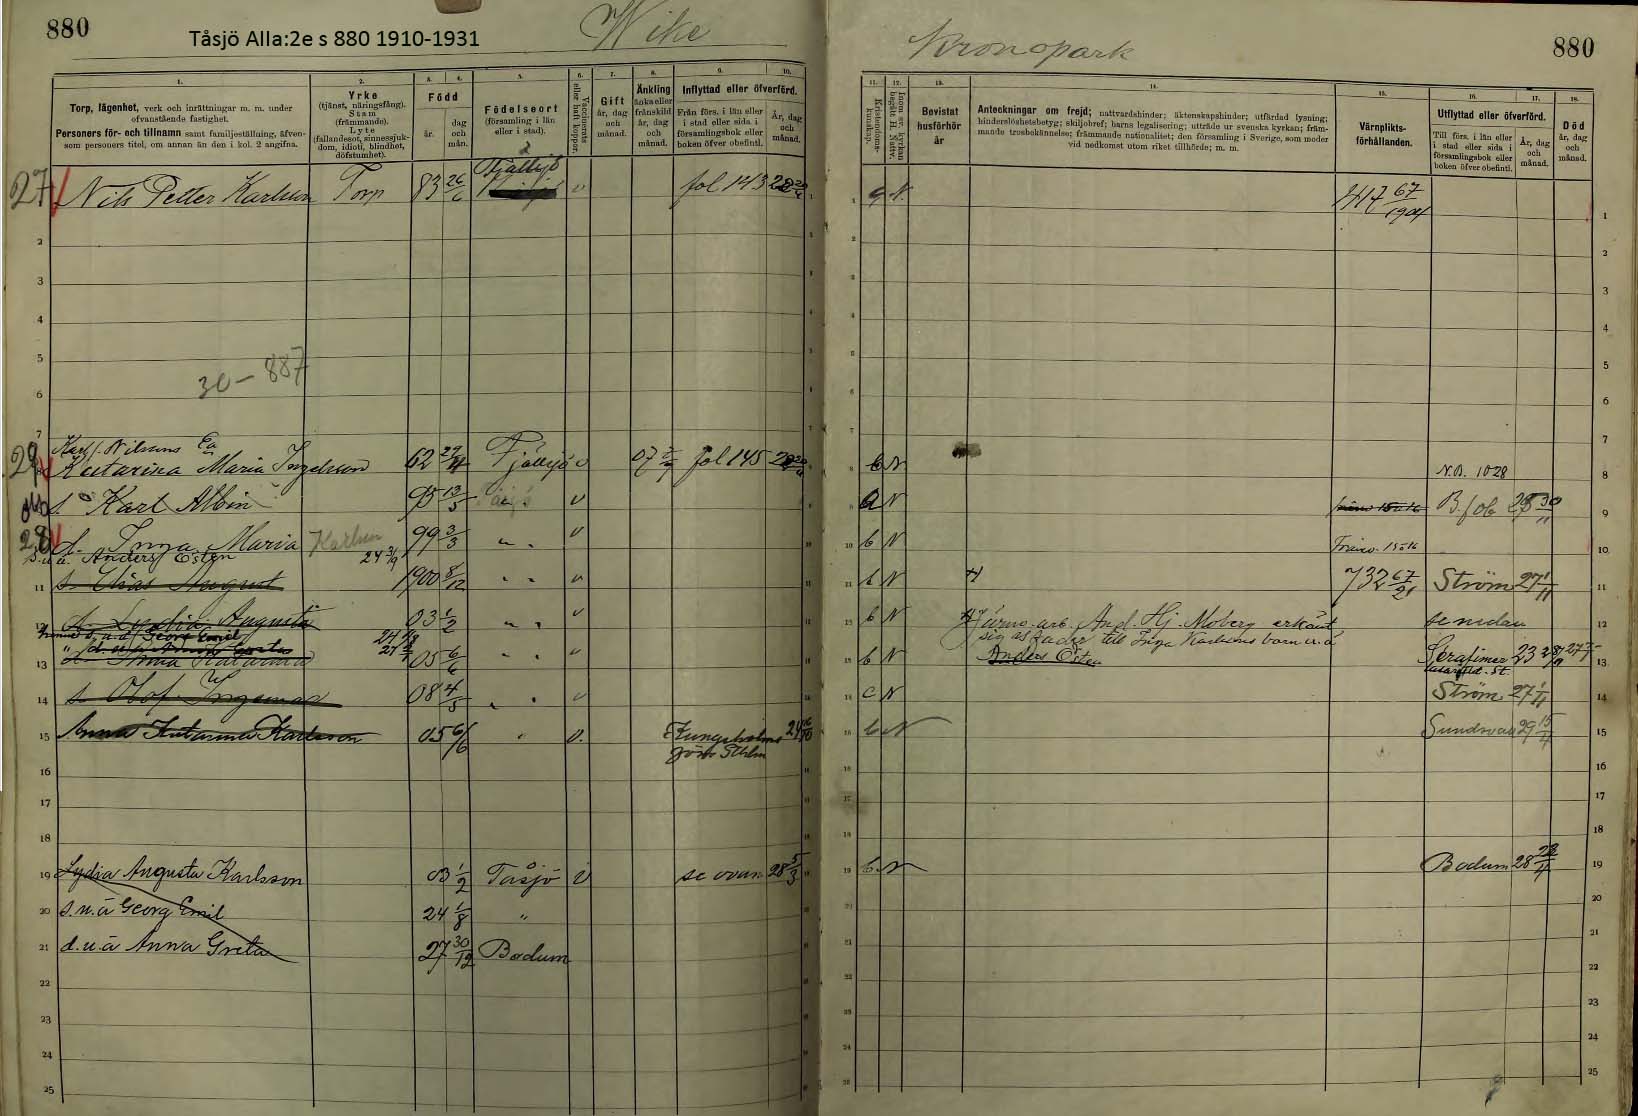 880
Tåsjö Alla:2e s 880 1910-1931
Wike
Kronopark
880
1. 2. 3. 4. 5. 6. 7. 8. 9. 10.
Torp, lägenhet, verk och inrättningar m. m. under
ofvanstående fastighet.
Personers för- och tillnamn samt familjeställning, äfven-
som personers titel, om annan än den i kol. 2 angifna.
Yrke
(tjänst, näringsfång).
Stam
(främmande).
Lyte
(fallandesot, sinnessjuk-
dom, idioti, blindhet,
döfstumhet).
Född
år.
dag
och
mån.
Födelseort
(församling i län
eller i stad).
Vaccinerats
eller haft koppor.
Gift
år, dag
och
månad.
Änkling
änka eller
frånskild
år, dag
och
månad.
Inflyttad eller öfverförd.
Från förs. i län eller
i stad eller sida i
församlingsbok eller
boken öfver obefintl.
År, dag
och
månad.
11. 12. 13. 14. 15. 16. 17. 18.
Kristendoms-
kunskap.
Inom sv. kyrkan
begått H. Nattv.
Bevistat
husförhör
år
Anteckningar om frejd; nattvardshinder; äktenskapshinder; utfärdad lysning;
hinderslöshetsbetyg; skiljobref; barns legalisering; utträde ur svenska kyrkan; främ-
mande trosbekännelse; främmande nationalitet; den församling i Sverige, som moder
vid nedkomst utom riket tillhörde; m. m.
Värnplikts-
förhållanden.
Utflyttad eller öfverförd.
Till förs. i län eller
i stad eller sida i
församlingsbok eller
boken öfver obefintl.
År, dag
och
månad.
Död
år, dag
och
månad.
27 Nils Petter Karlsson Torp 83 26/6 Fjällsjö v fol 143 g N. 417 67/1904
2
3
4
5
30-887
6
7
29 Karl Nilssons Ea
Katarina Maria Ingelsson 62 Fjällsjö v fol 145 b N N.B. 1028 8
s. Karl Albin 95 13/5 v a N B. fob 9
28 d. Inga Maria Karlsson 99 3/3 " v b N 10
s. u. ä. Anders Östen 24 3/9
11 s. Elias August 1900 8/12 " v b N 732 67/21 Ström 27 1/11 11
12 d. Lydia Augusta 03 1/2 " v b N Järnv. arb. And. Hj. Moberg erkänt se nedan 12
hennes s. u. ä. Georg Emil
sig as fader till Inga Karlssons barn u. ä
13 d. Anna Katarina 05 6/6 " v b N Anders Östen Serafimer 23 13
lasarettet. St.
14 s. Olof Ingemar 08 4/5 " v c N Ström 27 1/11 14
15 Anna Katarina Karlsson 05 6/6 " v. Kungsholms b N Sundsvall 29 15/4 15
förs Sthlm
16
17
18
19 Lydia Augusta Karlsson 03 1/2 Tåsjö v se ovan 28 5/3 b N Bodum 28 19
20 s. u. ä Georg Emil 24 1/8 " 20
21 d. u. ä Anna Greta 27 30/12 Bodum 21
22
23
24
25